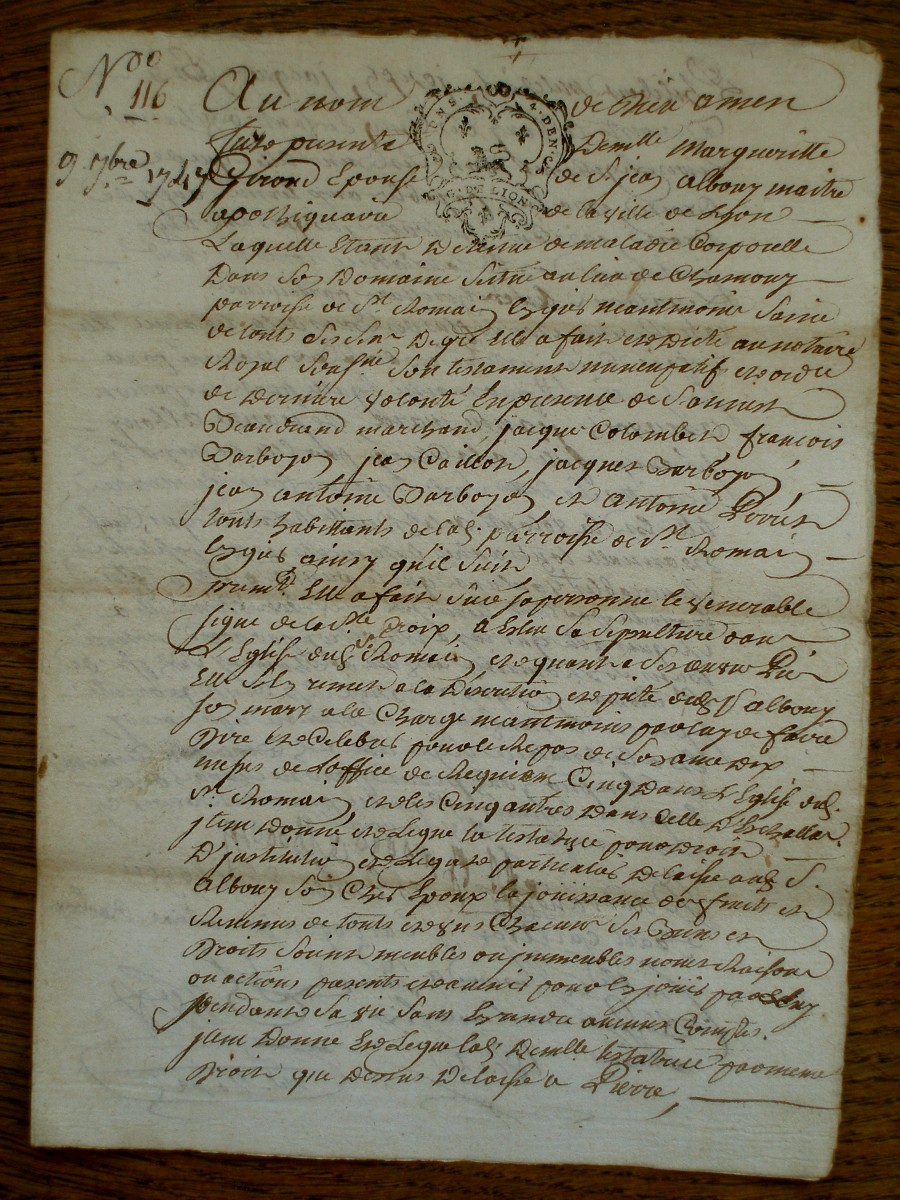 Noo
116
9 7bre 1747
Au nom de Dieu amen
fut presente Demlle Margueritte
Girond Epouse de Sr jean albouy maitre
apothiquaire de la ville de Lyon
GNS DEN
G. DE LYON
Laquelle Etant Detenue de maladie Corporelle
Dans son Domaine Situé au lieu de Chamouny
parroisse de St Romain neantmoins Saine
de touts ses sens De gré Elle a fait et dicté au notaire
Royal Soussigné Son testament nuncupatif et ordre
de Derniere volonté En presence de
marchand, jacque Colombet françois
Darbogon jean Caillon, jacques Darbogon
jean antoine Darbogon et antoine
touts habittants de lad. parroisse de St Romain
ainsy qu'il Suit
premt Elle a fait Sur sa personne le venerable
signe de la Ste Croix, a Eslu Sa Sepulture dans
L'Eglise dud. St Romain, et quant a Ses oeuvres Pie
Elle S'en remet a la Discretion et pieté dud. Sr albouy
son mary a la Charge neantmoins par luy de faire
Dire et Celebrer pour le Repos de Son ame Dix
messes de L'office de Requiem Cinq Dans L'Eglise dud.
St Romain et les Cinq autres Dans Celle D'Echallas.
jtem Donne et Legue la testatrice pour Droit
D'institution et Legat particulier Delaisse aud. S.
albouy Son Cher Epoux la joüissance des fruits et
Revenus de touts et uns Chacuns Ses Biens et
Droits Soient meubles ou jmmeubles noms Raisons
ou actions presents et avenir pour En jouir par Luy
pendant Sa vie Sans En rendre aucuns Comptes.
jtem Donne et Legue lad. Demlle testatrice par meme
Droit que Dessus Delaisse a Pierre